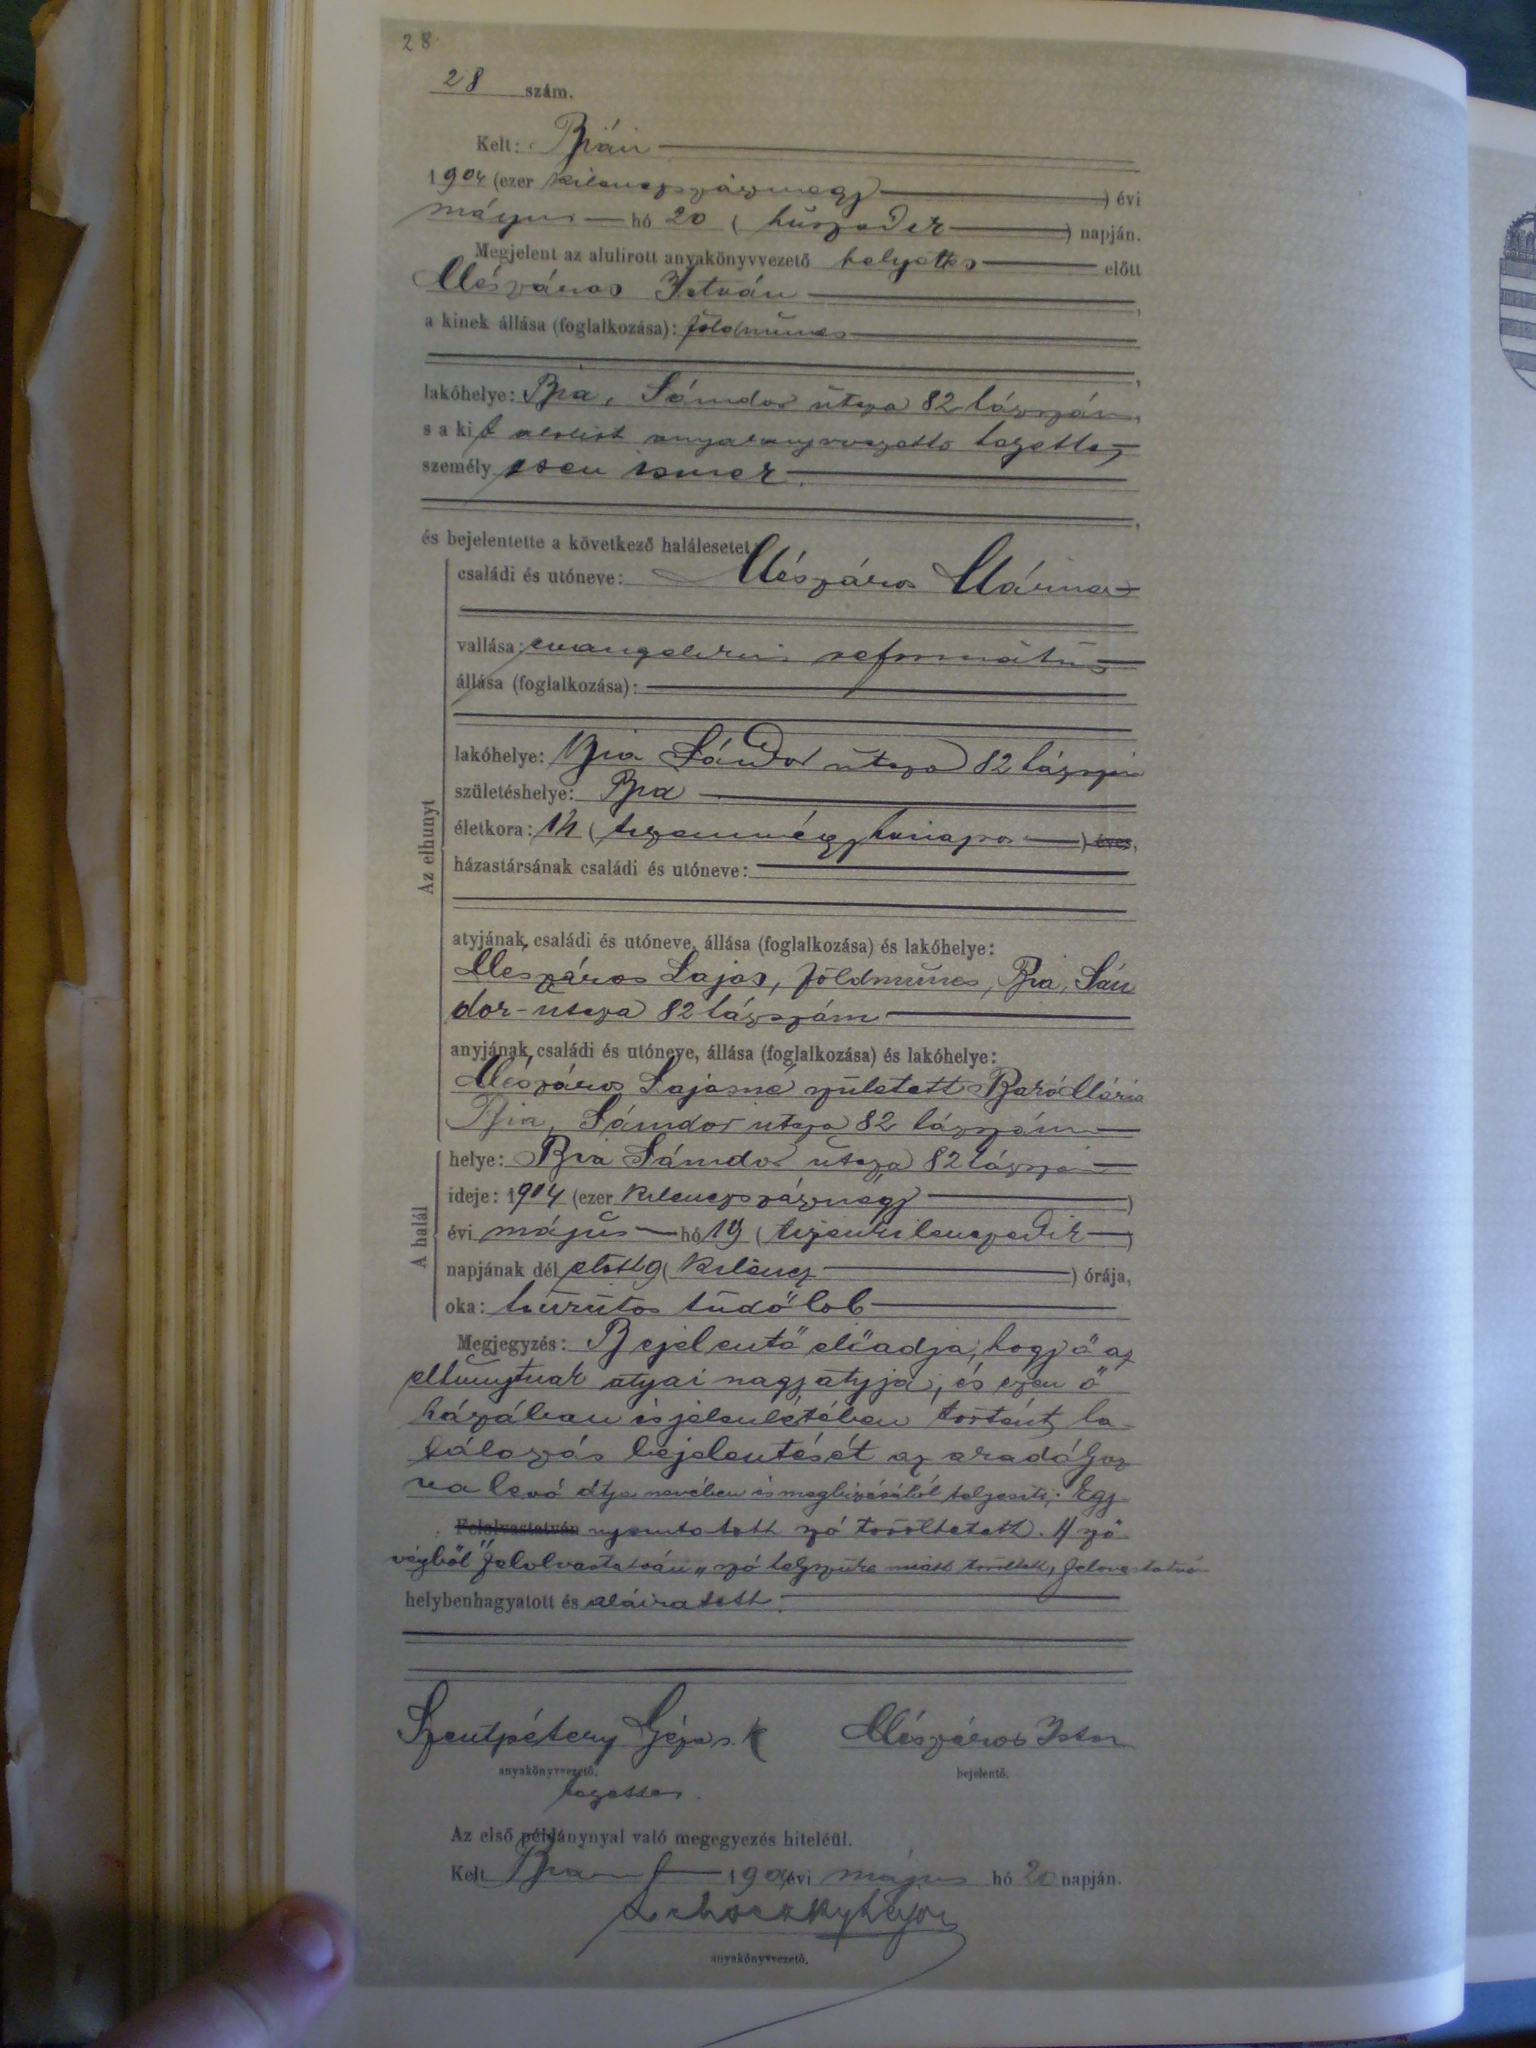 28
28 szám.
Kelt: Bián
1904 (ezer kilenczszáznegy) évi
május hó 20 (huszadik) napján.
Megjelent az alulirott anyakönyvvezető helyettes előtt
Mészáros István,
a kinek állása (foglalkozása): földműves
lakóhelye: Bia, Sándor utcza 82 házszám,
s a kit alulirt anyakönyvvezető
személyesen ismer.
és bejelentette a következő halálesetet:
Az elhunyt
családi és utóneve: Mészáros Mária
vallása: evangelikus református
állása (foglalkozása):
lakóhelye: Bia Sándor utcza 82 házszám
születéshelye: Bia
életkora: 14 (tizennégy hónapos) éves,
házastársának családi és utóneve:
atyjának családi és utóneve, állása (foglalkozása) és lakóhelye:
Mészáros Lajos, földműves, Bia, Sán
dor-utcza 82 házszám
anyjának családi és utóneve, állása (foglalkozása) és lakóhelye:
Mészáros Lajosné született Baró Mária
Bia, Sándor utcza 82 házszám
A halál
helye: Bia Sándor utcza 82 házszám
ideje: 1904 (ezer kilenczszáznégy)
évi május hó 19 (tizenkilenczedik)
napjának dél előtt 9 (kilencz) órája,
oka: hurutos tüdőlob
Megjegyzés: Bejelentő előadja, hogy ő az
elhunytnak atyai nagyatyja, és ezen ő
házában és jelenlétében történt ha
lálozás bejelentését az
levő atya nevében és megbizásából teljesiti. Egy
Felolvastatván nyomtatott szó töröltetett. A
végből "felolvastatván" szó miatt töröltett, felolvastatván
helybenhagyatott és aláiratott.
Szentpétery Géza s. k Mészáros Istvn
anyakönyvvezető. bejelentő.
Az első példánynyal való megegyezés hiteléül.
Kelt Bián 1904 évi május hó 20 napján.
anyakönyvvezető.